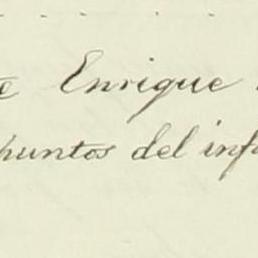 e Enrique
huntos del inf